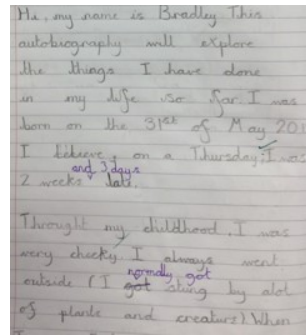 Hi, my name is Bradley This
autobiography will explore
the things I have done
in my life so far. I was
born on the 31st of May 201
I believe, on a Thursday; I was
and 3 days
2 weeks late.
Throught my childhood, I was
very cheeky. I always went
normally got
outside (I got stung by alot
of plants and creatures). When